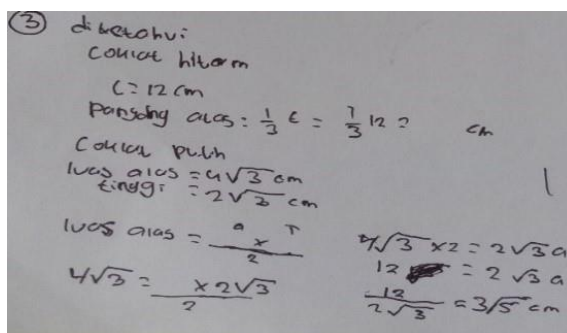 ③ diketahui
Coklat hitam
t = 12 cm
Panjang alas = 1/3 t = 1/3 12 = cm
Coklat putih
luas alas = 4√3 cm
tinggi = 2√3 cm
luas alas = a x T / 2
4√3 = x 2√3 / 2
4√3 x 2 = 2√3 a
12 = 2√3 a
12 / 2√3 = 3√5 cm